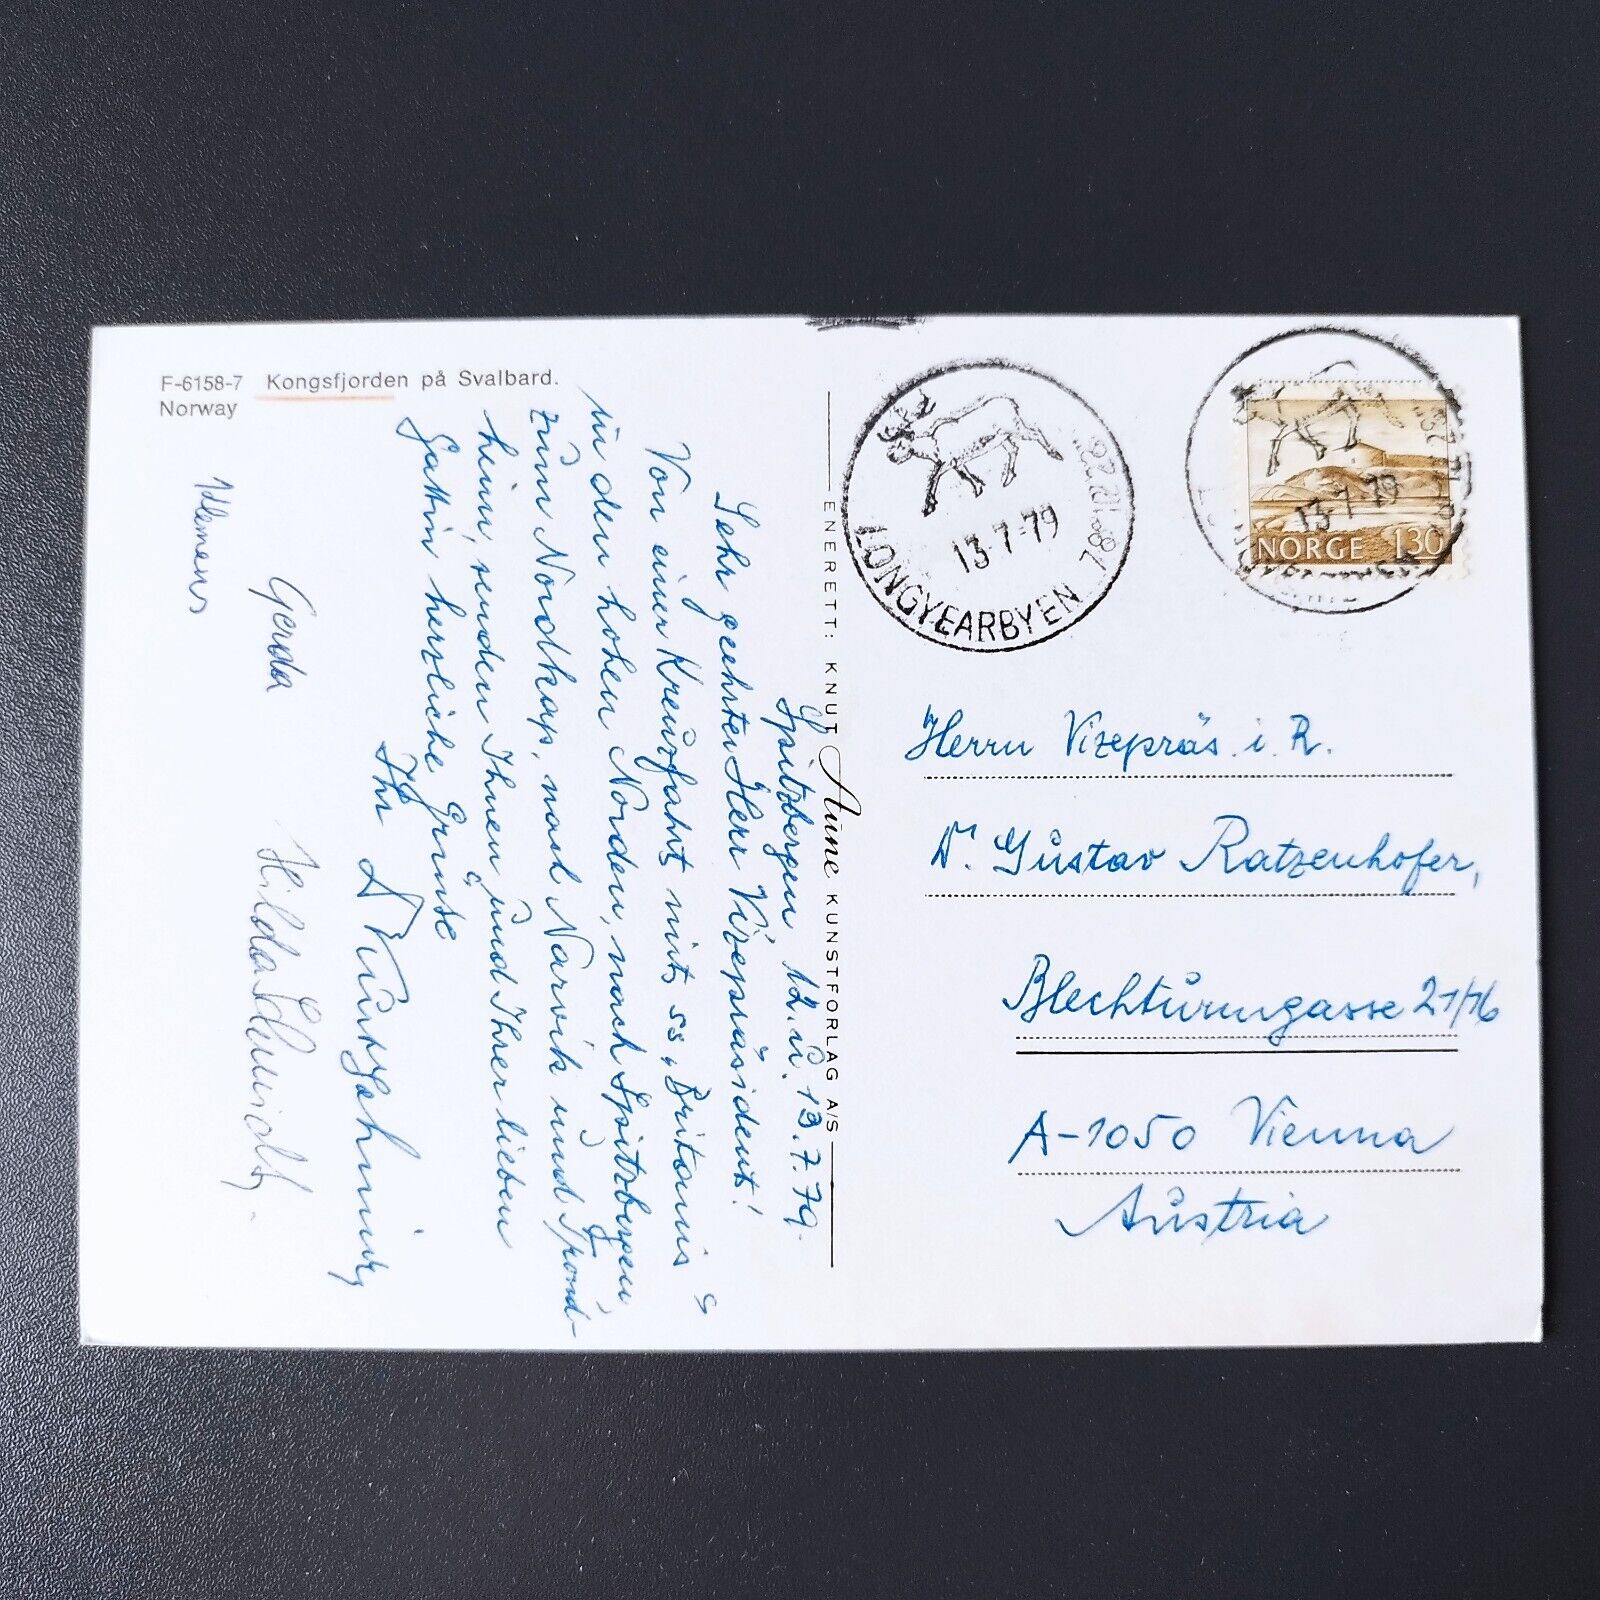 F-6158-7 Kongsfjorden på Svalbard.
Norway
Spitzbergen, 12. u. 13. 7. 79.
Sehr geehrter Herr Vizepräsident!
Von einer Kreuzfahrt mit ss „Britanis"
in den hohen Norden, nach Spitzbergen,
zum Nordkap, nach Narvik und Trond-
heim, senden Ihnen und Ihrer lieben
Gattin herzliche Grüße
Ihr
Gerda Hilda Schmidt.
Klemens
ENERETT: KNUT Aune KUNSTFORLAG A/S
LONGYEARBYEN
13-7-79
78° 12' 22"
NORGE 130
13-7-79
Herrn Vizepräs. i. R.
Dr. Gustav Ratzenhofer,
Blechturmgasse 21/16
A-1050 Vienna
Austria